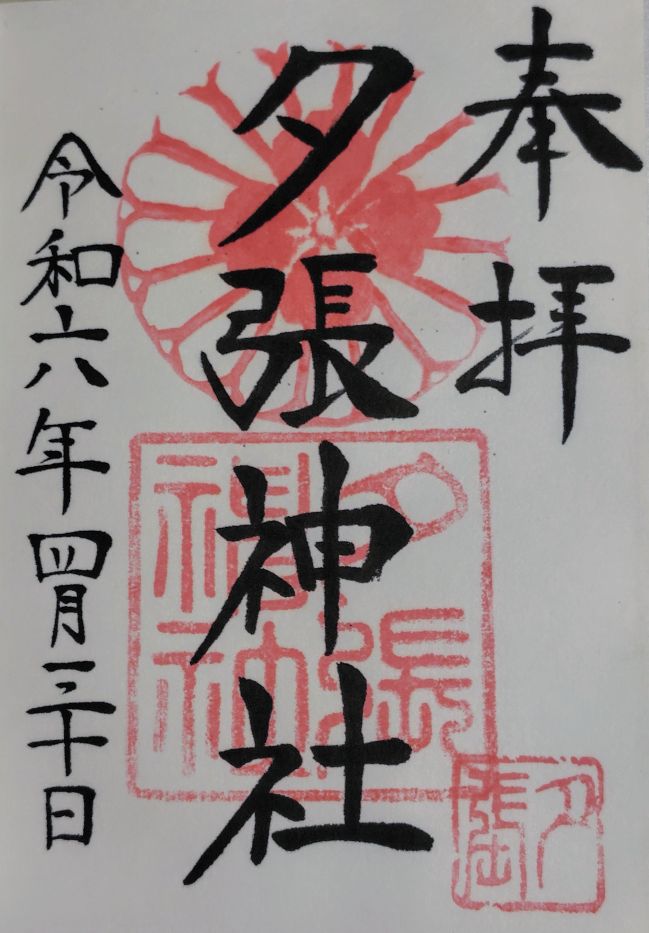 奉拝
夕張神社
令和六年四月三十日
夕張